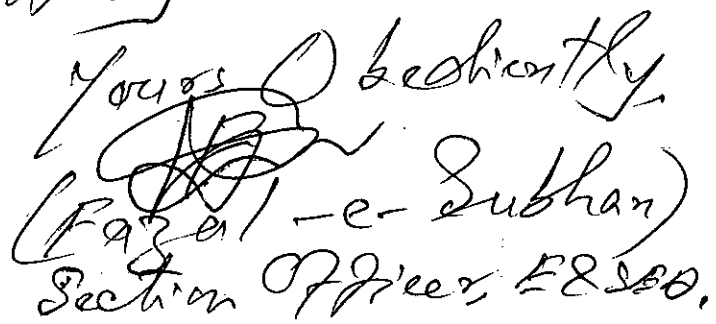 Yours Obediently,
(Fazal-e-Subhan)
Section Officer, E&SED.